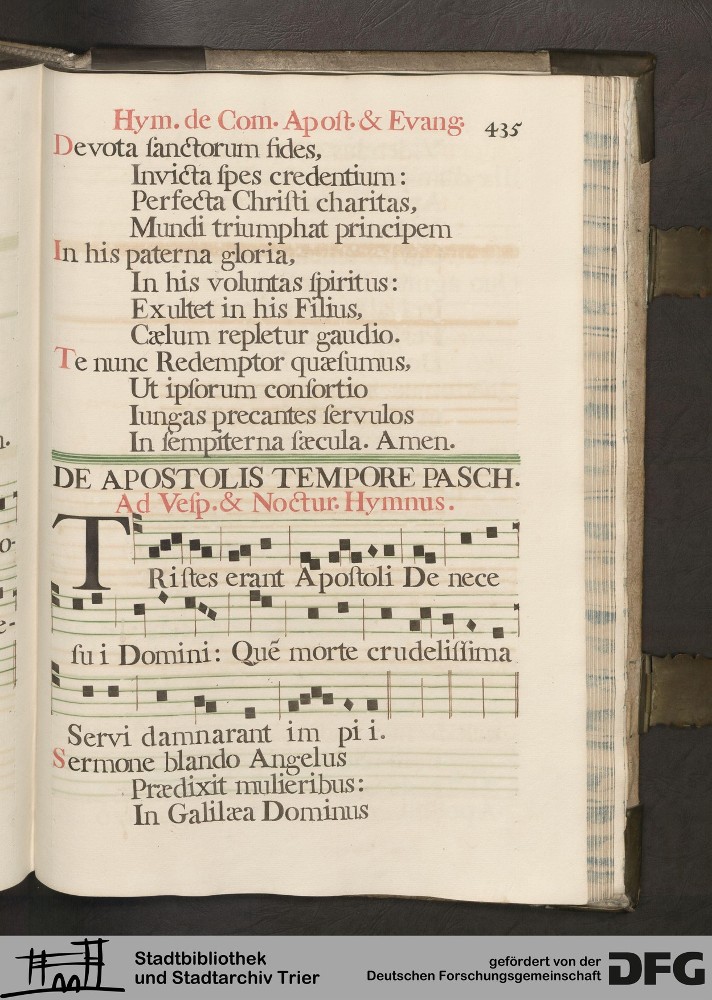 Hym. de Com. Apoſt. & Evang. 435
Devota ſanctorum fides,
Invicta ſpes credentium:
Perfecta Chriſti charitas,
Mundi triumphat principem
In his paterna gloria,
In his voluntas ſpiritus:
Exultet in his Filius,
Cælum repletur gaudio.
Te nunc Redemptor quæſumus,
Ut ipſorum conſortio
Iungas precantes ſervulos
In ſempiterna ſæcula. Amen.
DE APOSTOLIS TEMPORE PASCH.
Ad Veſp. & Noctur. Hymnus.
TRiſtes erant Apoſtoli De nece
ſu i Domini: Quẽ morte crudeliſſima
Servi damnarant im pi i.
Sermone blando Angelus
Prædixit mulieribus:
In Galilæa Dominus
Stadtbibliothek
und Stadtarchiv Trier
gefördert von der
Deutschen Forschungsgemeinschaft
DFG